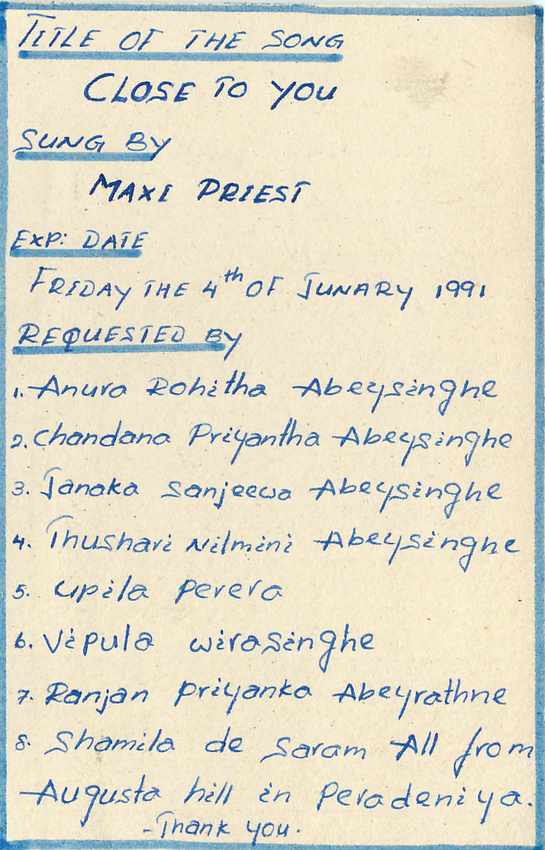 TITLE OF THE SONG
CLOSE TO YOU
SUNG BY
MAXI PRIEST
EXP: DATE
FRIDAY THE 4th OF JUNARY 1991
REQUESTED BY
1. Anura Rohitha Abeysinghe
2. Chandana Priyantha Abeysinghe
3. Janaka Sanjeewa Abeysinghe
4. Thushari Nilmini Abeysinghe
5. Upila Perera
6. Vipula Wirasinghe
7. Ranjan Priyanka Abeyrathne
8. Shamila de Saram All from
Augusta hill in Peradeniya.
- Thank you.